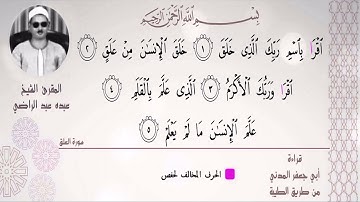 بِسْمِ اللَّهِ الرَّحْمَٰنِ الرَّحِيمِ
اقْرَا بِاسْمِ رَبِّكَ الَّذِي خَلَقَ ١ خَلَقَ الْإِنسَٰنَ مِنْ عَلَقٍ ٢
اقْرَا وَرَبُّكَ الْأَكْرَمُ ٣ الَّذِي عَلَّمَ بِالْقَلَمِ ٤
عَلَّمَ الْإِنسَٰنَ مَا لَمْ يَعْلَمْ ٥
القارئ الشيخ
عبده عبد الراضي
سورة العلق
قراءة
أبي جعفر المدني
من طريق الطيبة
الحرف المخالف لحفص